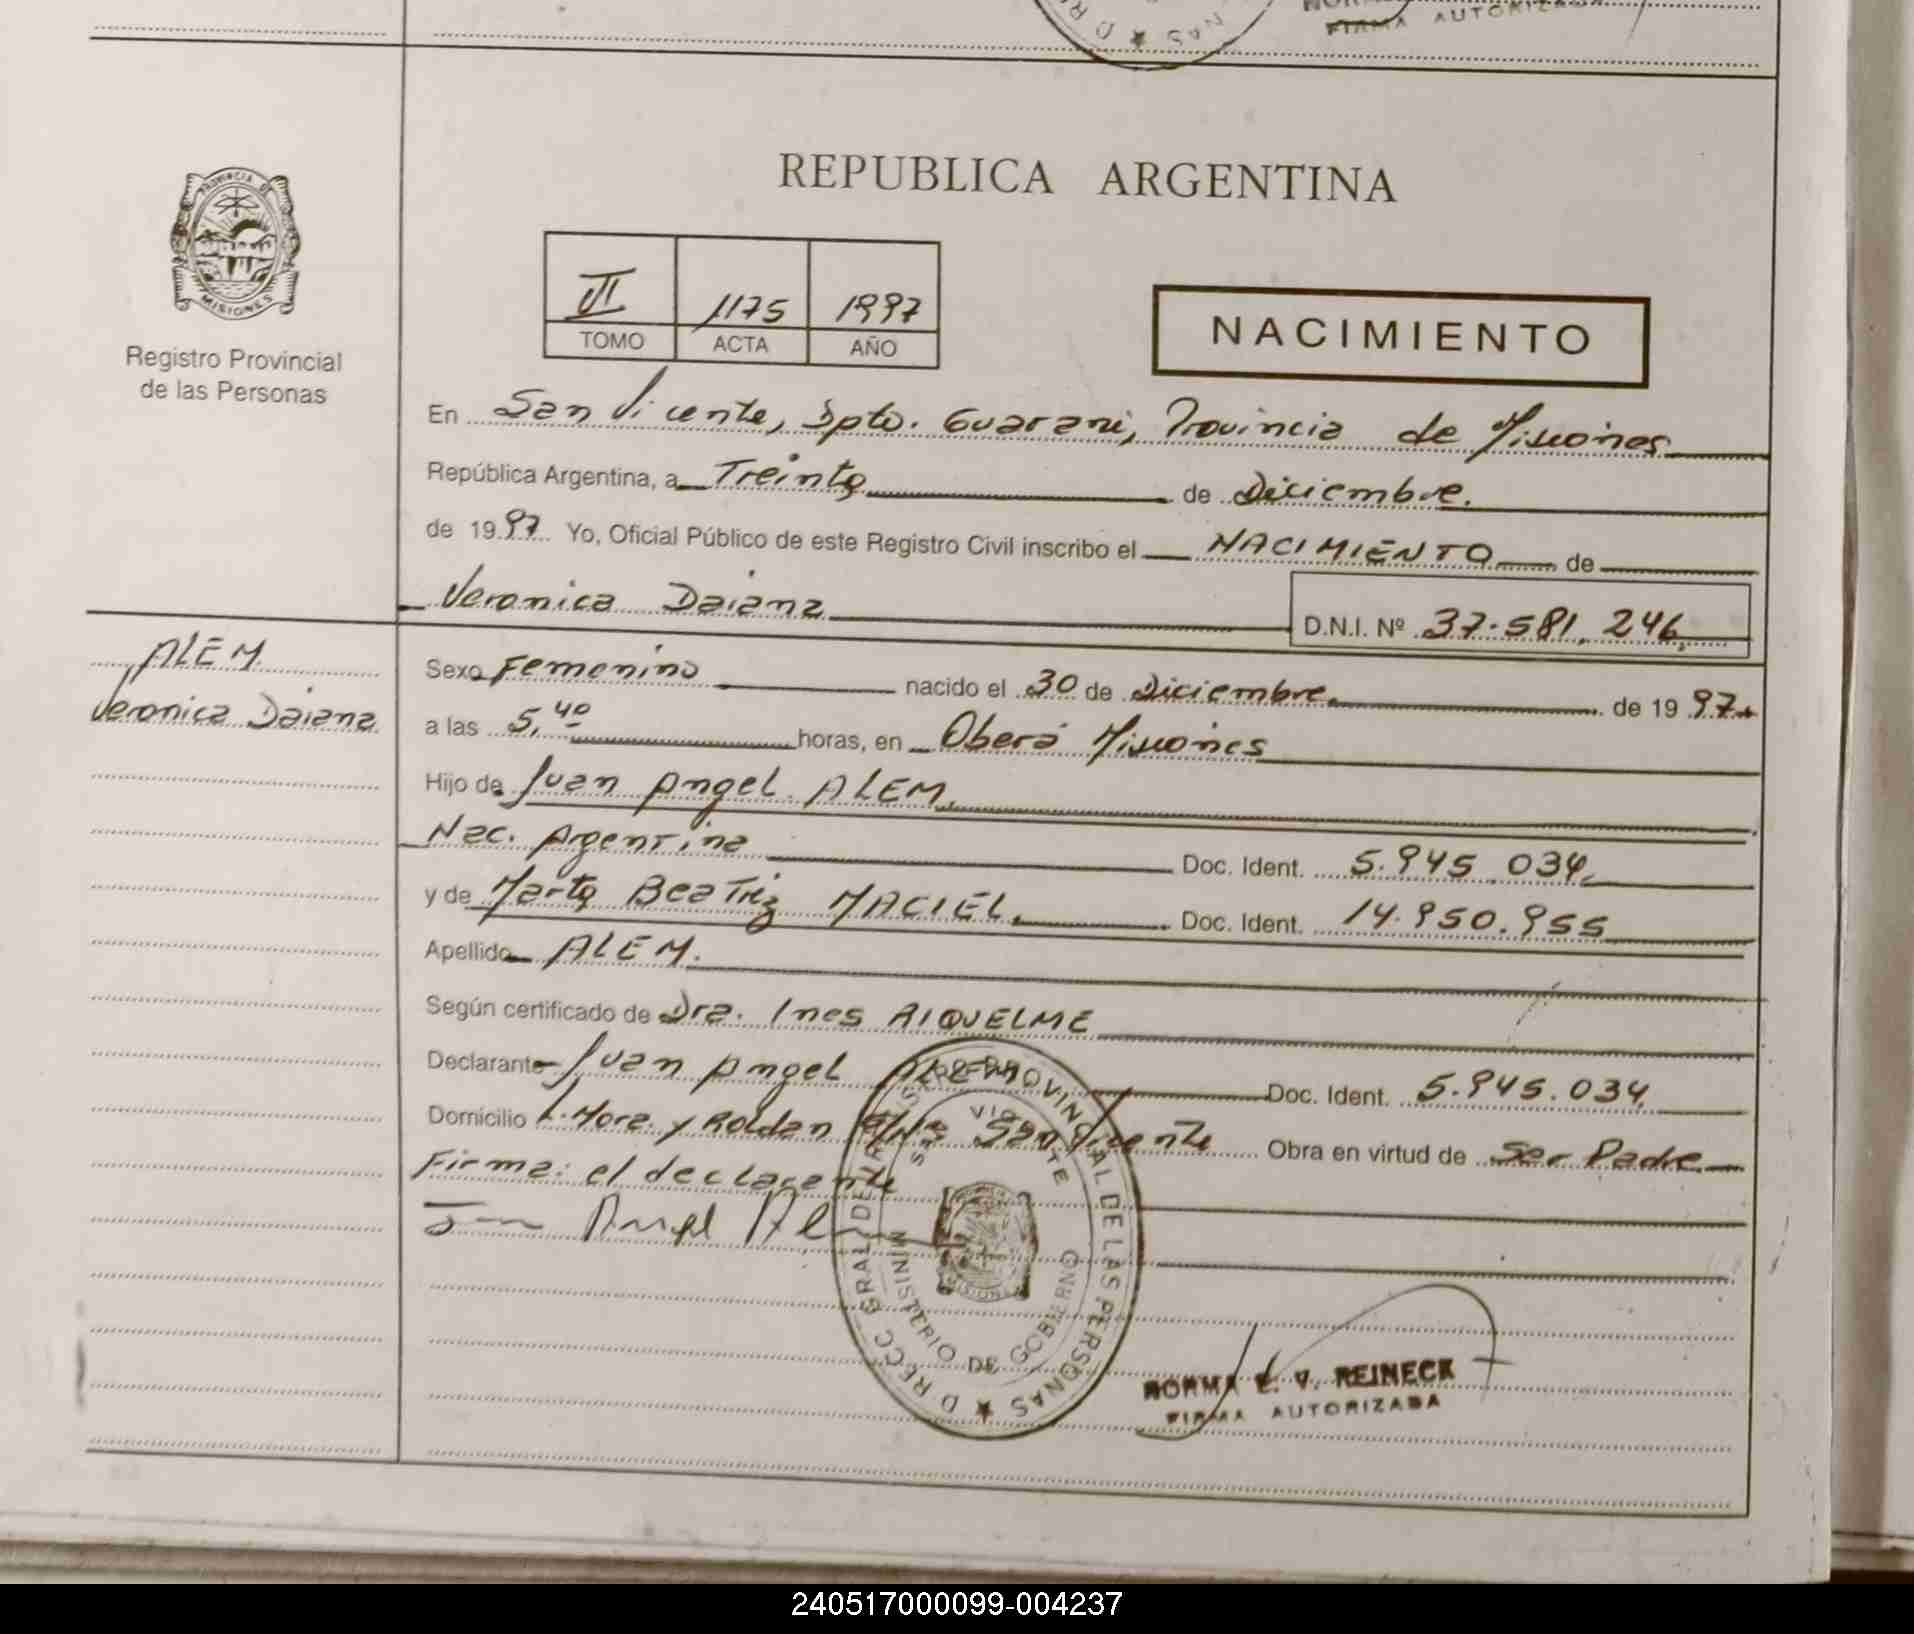 FIRMA AUTORIZADA
REPUBLICA ARGENTINA
PROVINCIA DE
MISIONES
Registro Provincial
de las Personas
VI 1175 1997
TOMO ACTA AÑO
NACIMIENTO
En San Vicente, Dpto. Guarani, Provincia de Misiones
República Argentina, a Treinta de Diciembre.
de 1997 Yo, Oficial Público de este Registro Civil inscribo el NACIMIENTO de
Veronica Daiana D.N.I. Nº 37.581.246
ALEM
Veronica Daiana
Sexo Femenino nacido el 30 de Diciembre de 1997
a las 5,40 horas, en Oberá Misiones
Hijo de Juan Angel ALEM.
Nac. Argentina Doc. Ident. 5.945.034
y de Marta Beatriz MACIEL. Doc. Ident. 14.950.955
Apellido ALEM.
Según certificado de Dra. Ines RIQUELME
Declarante Juan Angel ALEM Doc. Ident. 5.945.034
Domicilio L. Mora y Roldan s/Nº San Vicente Obra en virtud de Ser Padre
Firma: el declarante
Juan Angel Al
SAN VICENTE
MINISTERIO DE GOBIERNO
NORMA E. V. REINECK
FIRMA AUTORIZADA
240517000099-004237